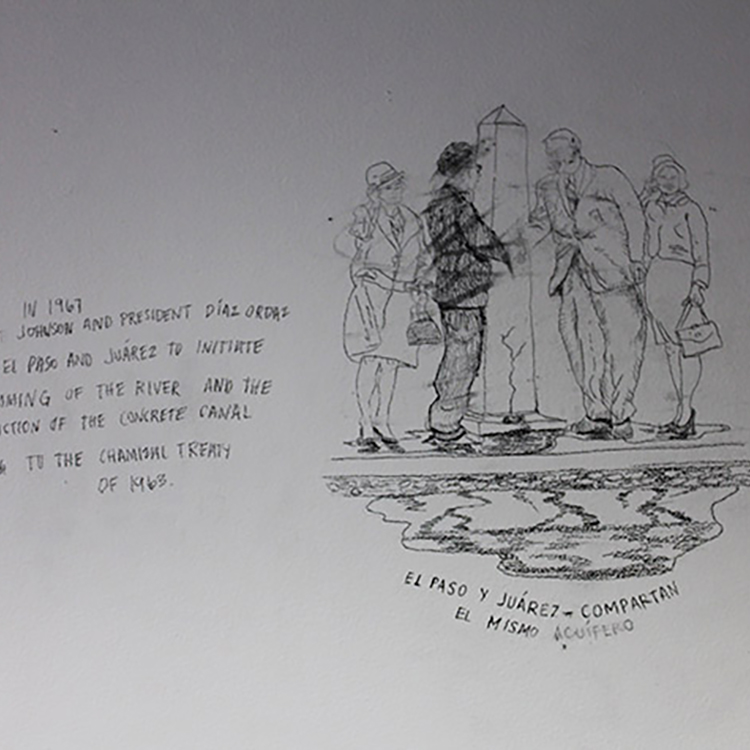 IN 1967
JOHNSON AND PRESIDENT DÍAZ ORDAZ
EL PASO AND JUÁREZ TO INITIATE
OF THE RIVER AND THE
OF THE CONCRETE CANAL
TO THE CHAMIZAL TREATY
OF 1963.
EL PASO Y JUÁREZ - COMPARTAN
EL MISMO ACUÍFERO